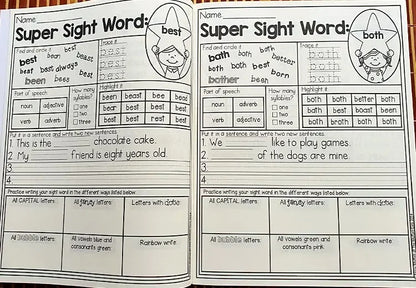 Name
Super Sight Word:
best
Find and circle it
Trace it
best bean best
bear best
beast
best best always
been bees
best
best
best
Part of speech
noun adjective
verb adverb
How many syllables?
one
two
three
Highlight it
been beast bee bead
bear best best best
best best rest best
Put it in a sentence and write two new sentences
1. This is the chocolate cake.
2. My friend is eight years old.
3.
4.
Practice writing your sight word in the different ways listed below.
All CAPITAL letters: All fancy letters: Letters with dots:
All bubble letters: All vowels blue and consonants green: Rainbow write:
Name
Super Sight Word:
both
Find and circle it
Trace it
both both both
better
bath both best
bother born
both
both
both
Part of speech
noun adjective
verb adverb
How many syllables?
one
two
three
Highlight it
both both better both
bath best boast been
both bother both both
Put it in a sentence and write two new sentences
1. We like to play games.
2. of the dogs are mine.
3.
4.
Practice writing your sight word in the different ways listed below.
All CAPITAL letters: All fancy letters: Letters with dots:
All bubble letters: All vowels green and consonants pink: Rainbow write: